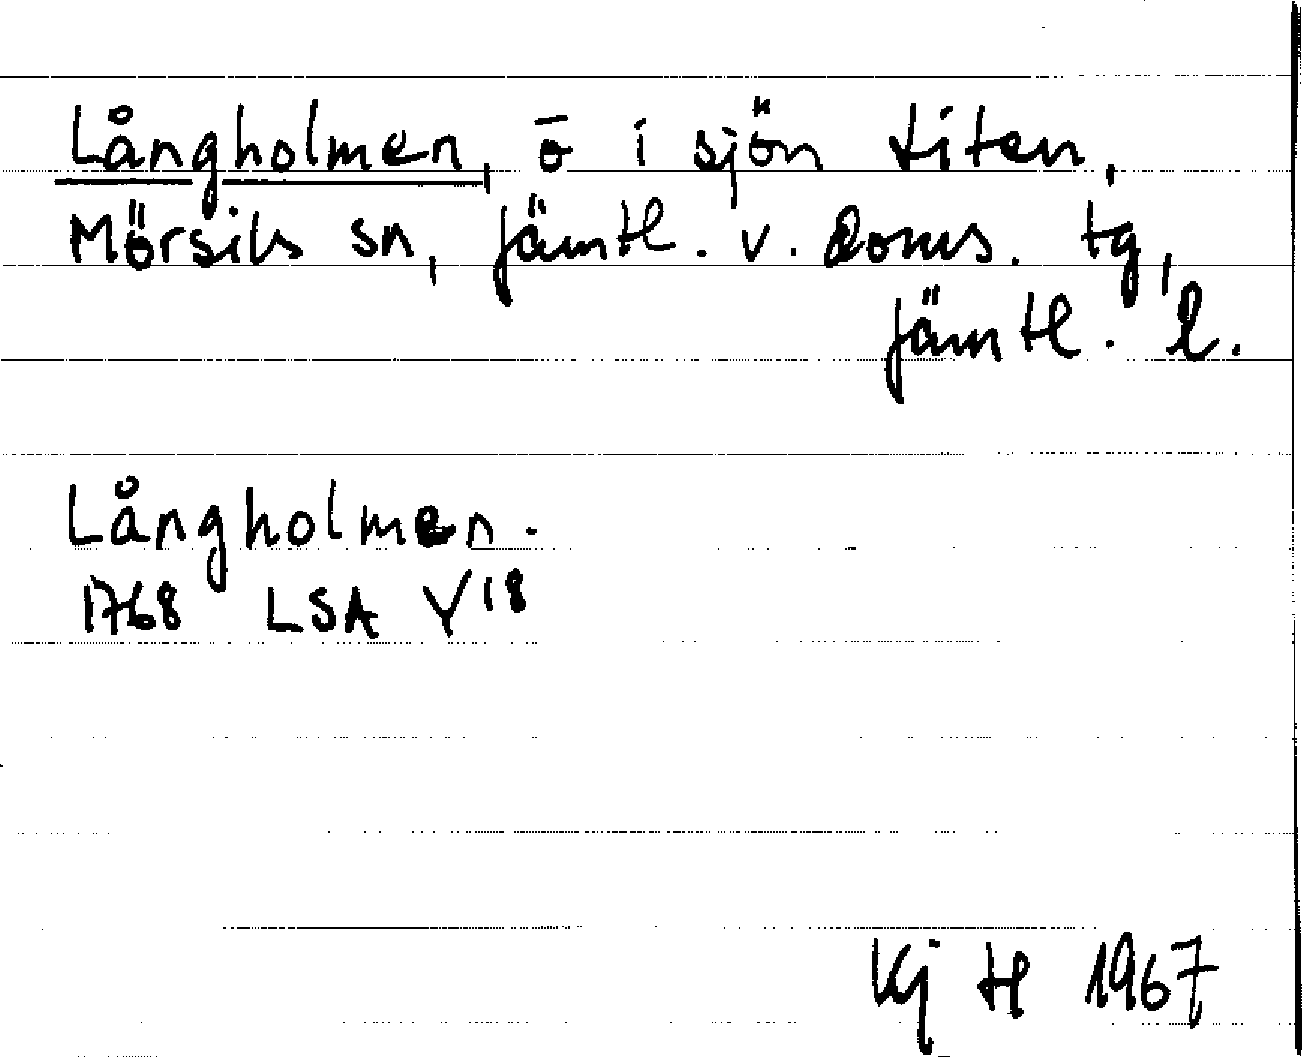 Långholmen, ö i sjön Liten,
Mörsils sn, Jämtl. v. doms. tg,
Jämtl. l.
Långholmen.
1768 LSA Y18
Kj H 1967